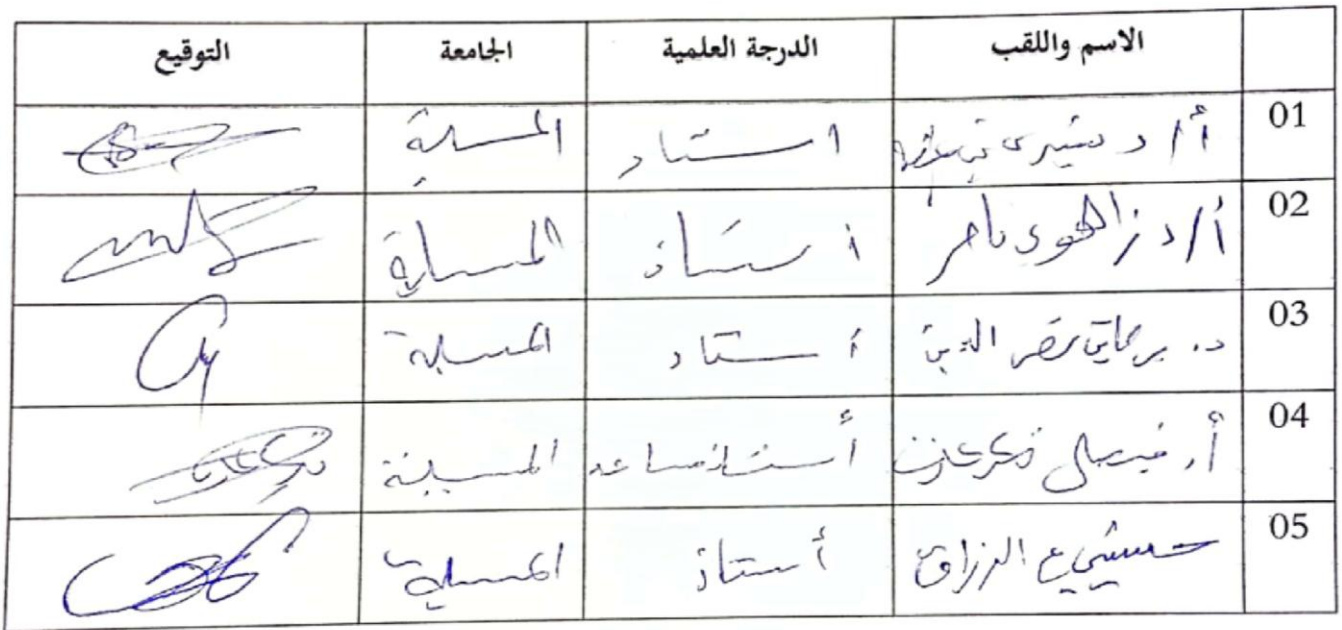 الاسم واللقب الدرجة العلمية الجامعة التوقيع
01 أ/د استاد المسيلة
02 أ/د زالهوى ناصر استاذ المسيلة
03 د. برهاني نصر الدين أستاد المسيلة
04 أ. فيصل أستاذ مساعد المسيلة
05 حسيني ع الرزاق أستاذ المسيلة